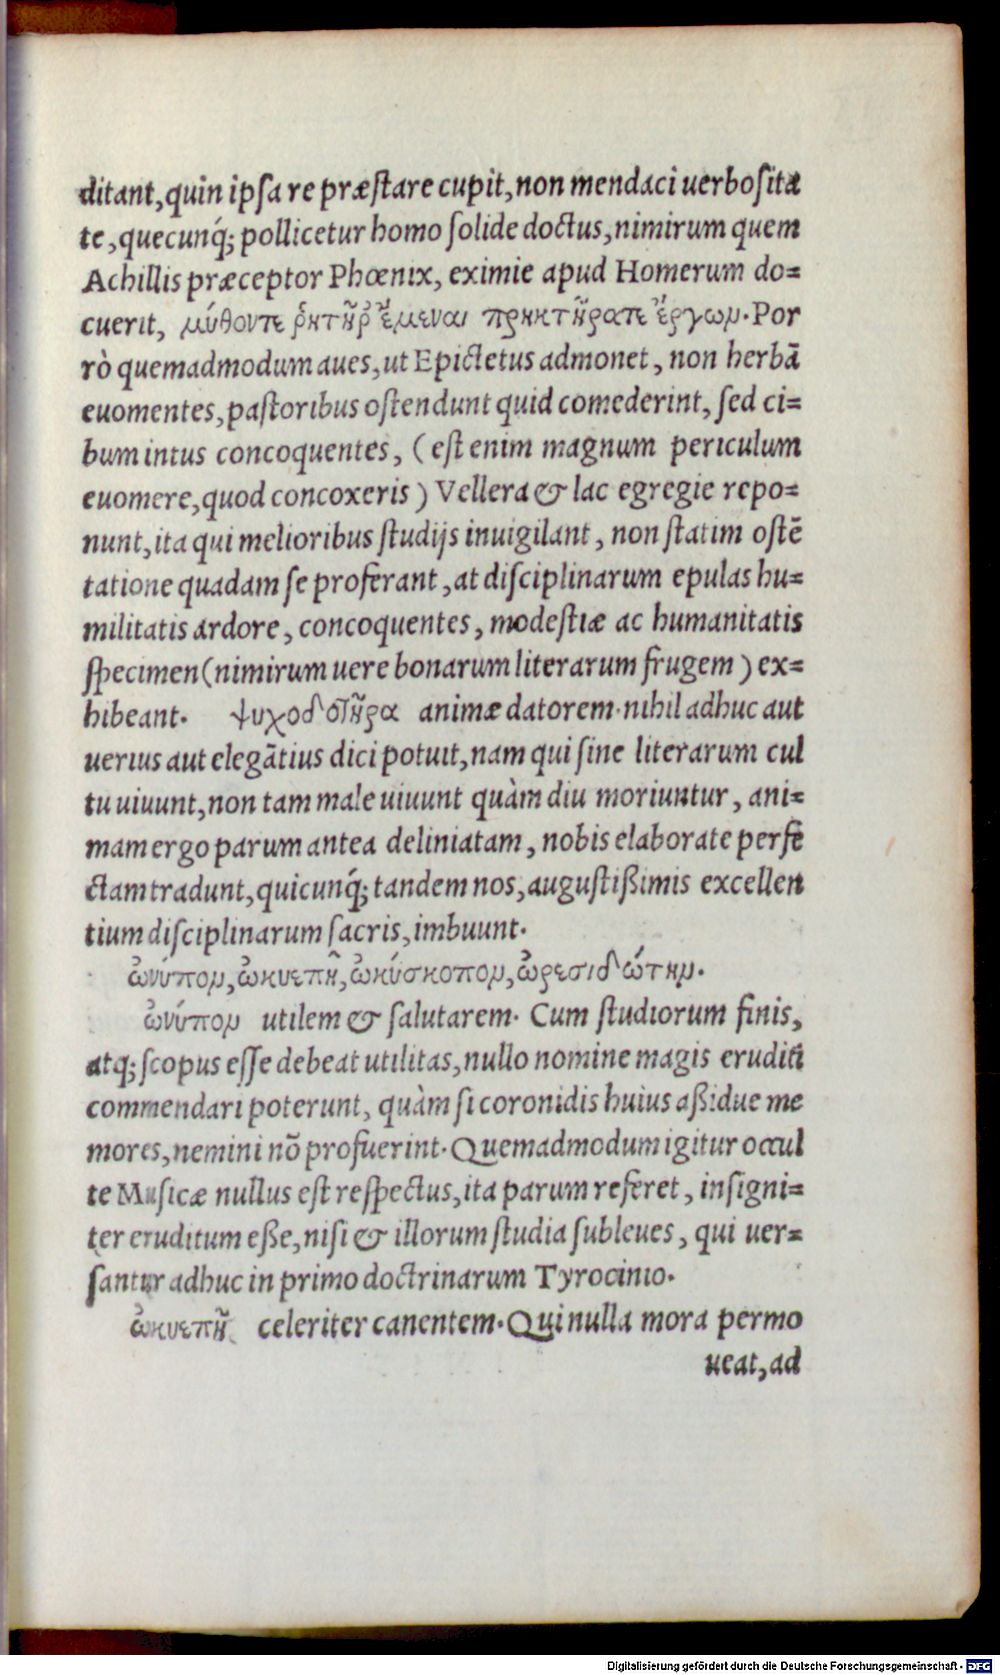 ditant, quin ipsa re præstare cupit, non mendaci uerbosita
te, quecunq́; pollicetur homo solide doctus, nimirum quem
Achillis præceptor Phœnix, eximie apud Homerum do=
cuerit, μύθοντε ῥητῆῤ ἔμεναι πρηκτῆρατε ἔργων. Por
rò quemadmodum aues, ut Epictetus admonet, non herbā
euomentes, pastoribus ostendunt quid comederint, sed ci=
bum intus concoquentes, (est enim magnum periculum
euomere, quod concoxeris) Vellera & lac egregie repo=
nunt, ita qui melioribus studijs inuigilant, non statim ostē
tatione quadam se proferant, at disciplinarum epulas hu=
militatis ardore, concoquentes, modestiæ ac humanitatis
specimen (nimirum uere bonarum literarum frugem) ex=
hibeant. ψυχοδοτῆρα animæ datorem. nihil adhuc aut
uerius aut elegātius dici potuit, nam qui sine literarum cul
tu uiuunt, non tam male uiuunt quàm diu moriuntur, ani=
mam ergo parum antea deliniatam, nobis elaborate perfe
ctam tradunt, quicunq́; tandem nos, augustißimis excellen
tium disciplinarum sacris, imbuunt.
ὠνύπον, ὠκυεπῆ, ὠκύσκοπον, ὠρεσιδώτην.
ὠνύπον utilem & salutarem. Cum studiorum finis,
atq; scopus esse debeat utilitas, nullo nomine magis eruditi
commendari poterunt, quàm si coronidis huius aßidue me
mores, nemini nō profuerint. Quemadmodum igitur occul
te Musicæ nullus est respectus, ita parum referet, insigni=
ter eruditum eße, nisi & illorum studia subleues, qui uer=
santur adhuc in primo doctrinarum Tyrocinio.
ὠκυεπῆ celeriter canentem. Qui nulla mora permo
ueat, ad
Digitalisierung gefördert durch die Deutsche Forschungsgemeinschaft - DFG